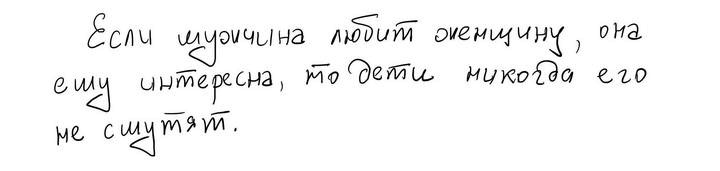 Если мужчина любит женщину, она
ему интересна, то дети никогда его
не смутят.